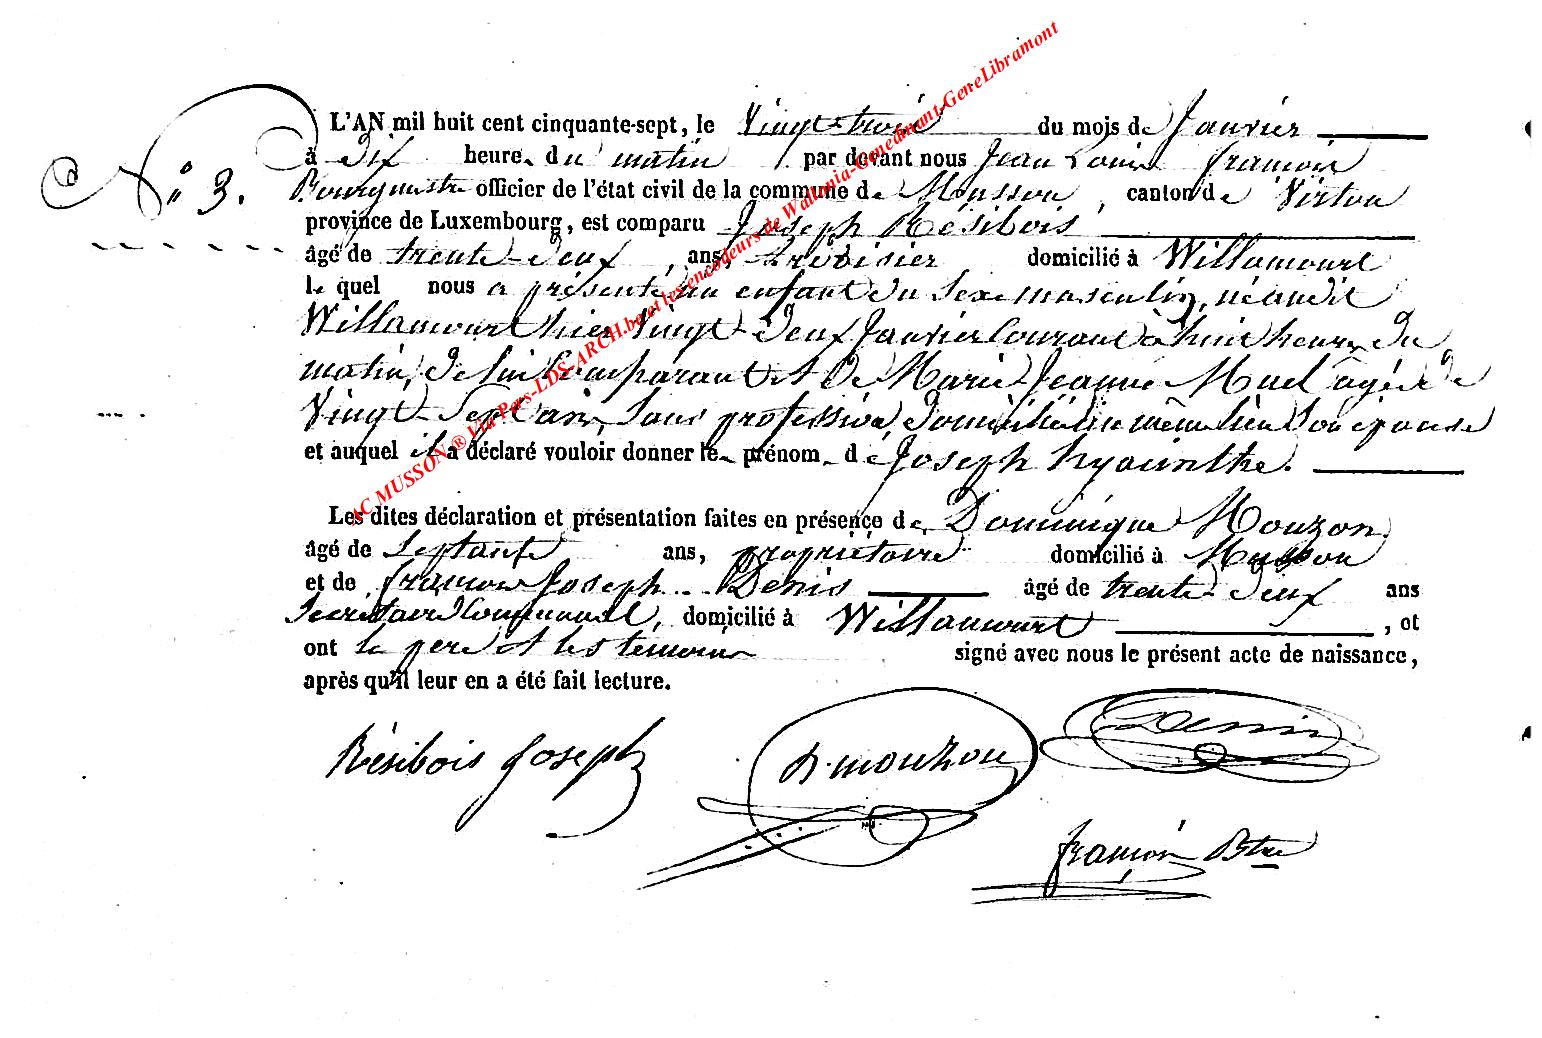 N° 3.
L'AN mil huit cent cinquante-sept, le Vingt-trois du mois de Janvier
à dix heure du matin par devant nous Jean Louis françois
Bourgmestre officier de l'état civil de la commune de Musson, canton de Virton
province de Luxembourg, est comparu Joseph Résibois
âgé de trente-deux, ans, domicilié à Willancourt
le quel nous a présenté un enfant du sexe masculin, né audit
Willancourt hier Vingt-deux Janvier Courant à huit heures du
matin, de lui Comparant et de Marie Jeanne Muel agée de
Vingt-Sept ans, sans profession domiciliée au même lieu Son épouse
et auquel il a déclaré vouloir donner le prénom de Joseph hyacinthe.
Les dites déclaration et présentation faites en présence de Dominique Mouzon
âgé de Septante ans, propriétaire domicilié à Musson
et de françois Joseph Denis âgé de trente-deux ans
Secrétaire Communal, domicilié à Willancourt, et
ont le père et les témoins signé avec nous le présent acte de naissance,
après qu'il leur en a été fait lecture.
Résibois Joseph
D. mouzon
Denis
françois Btre
AC MUSSON ® Via Pers-LDS-ARCH.be et les encodeurs de Wallonia-Genedinant-GeneLibramont